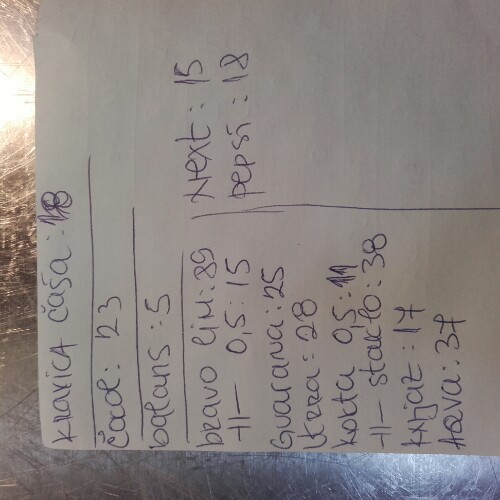 KRAVICA ČAŠA: 18
Čad: 23
balans: 5
bravo lim: 89
-||- 0,5: 15
Guarana: 25
kza: 28
kokta 0,5: 11
-||- staklo: 38
knjaz: 17
AQVA: 37
Next: 15
pepsi: 18